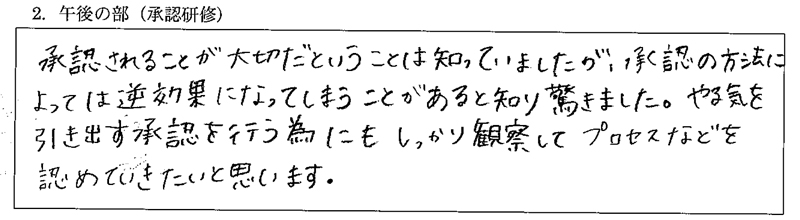 2. 午後の部（承認研修）
承認されることが大切だということは知っていましたが、承認の方法に
よっては逆効果になってしまうことがあると知り驚きました。やる気を
引き出す承認を行う為にもしっかり観察してプロセスなどを
認めていきたいと思います。